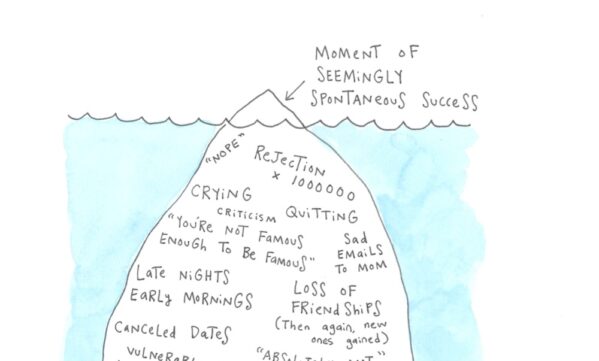 MOMENT OF
SEEMINGLY
SPONTANEOUS SUCCESS
"NOPE"
REJECTION
x 1000000
CRYING
CRITICISM QUITTING
"YOU'RE NOT FAMOUS
ENOUGH TO BE FAMOUS"
SAD
EMAILS
TO MOM
LATE NIGHTS
EARLY MORNINGS
LOSS OF
FRIENDSHIPS
(Then again, new
ones gained)
CANCELED DATES